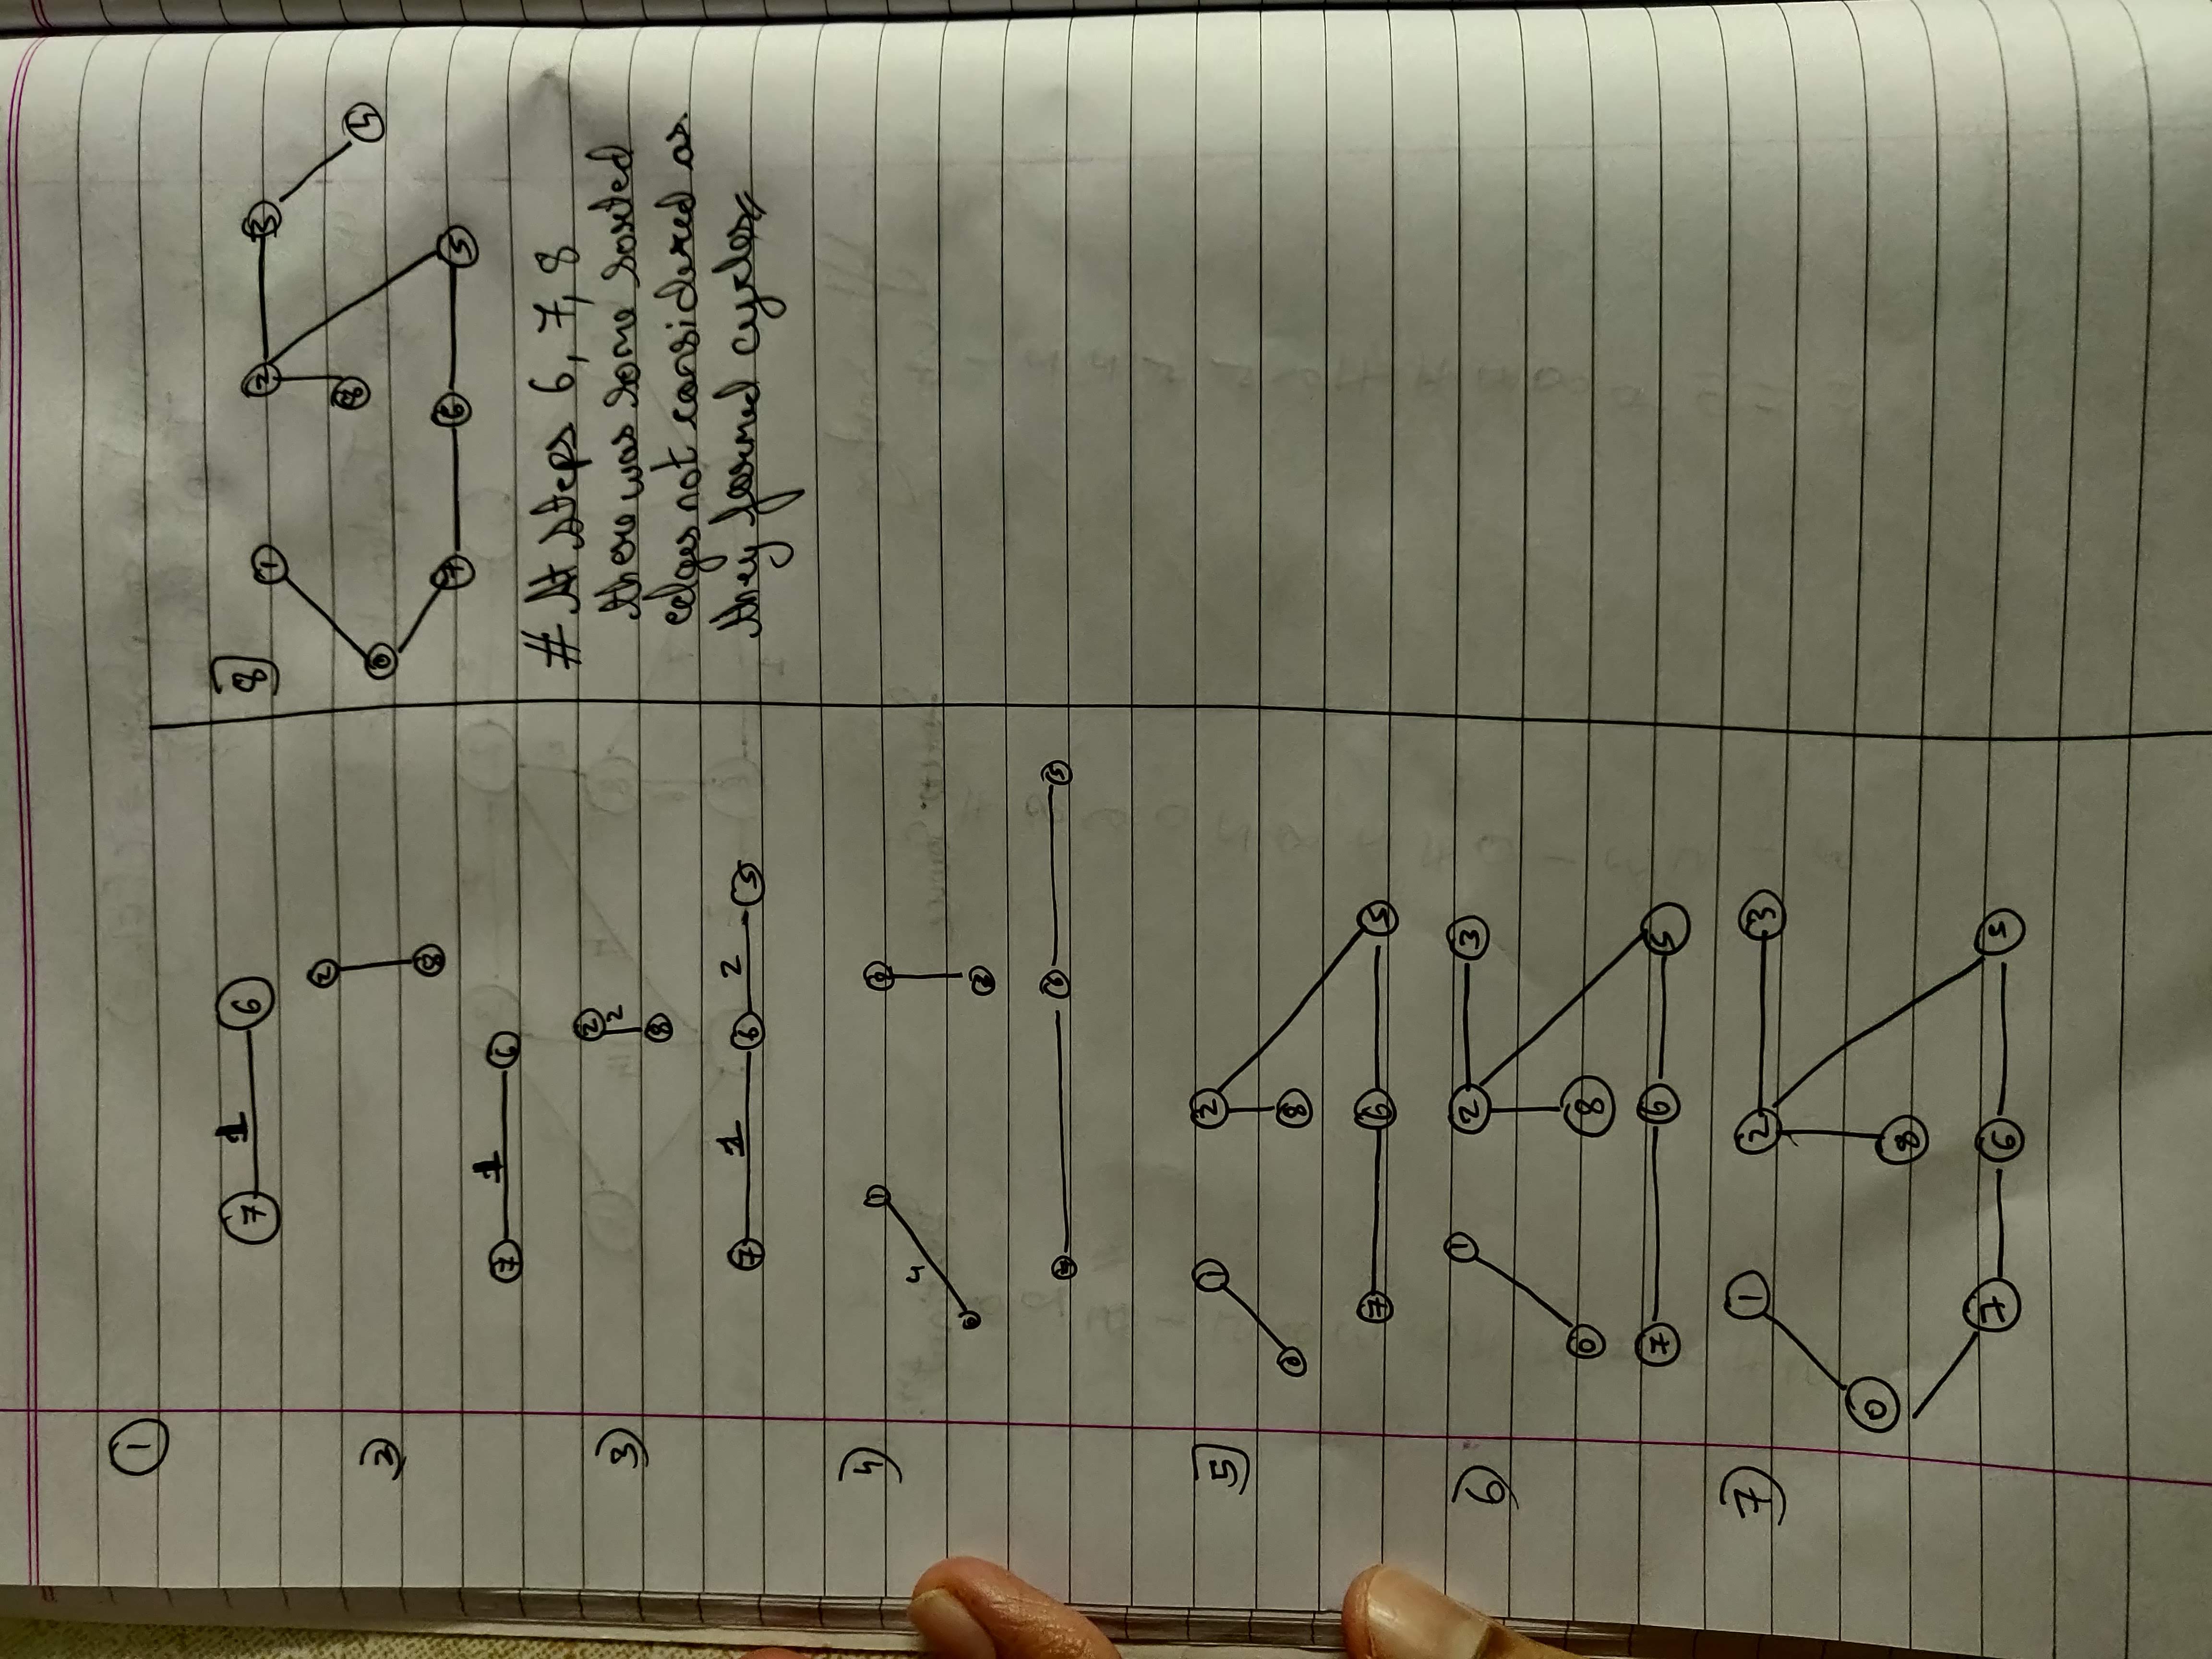 1
7 1 6
2)
2
8
7 1 6
3)
2
2
8
7 1 6 2 5
4)
1 2
4
0
8
7 6 5
5)
1 2
0 8
7 6 5
6)
1 2 3
0 8
7 6 5
7)
1 2 3
0
8
7 6 5
8)
1 2 3
8 4
0
7 6 5
# At steps 6, 7, 8
there was some sorted
edges not considered as
they formed cycles